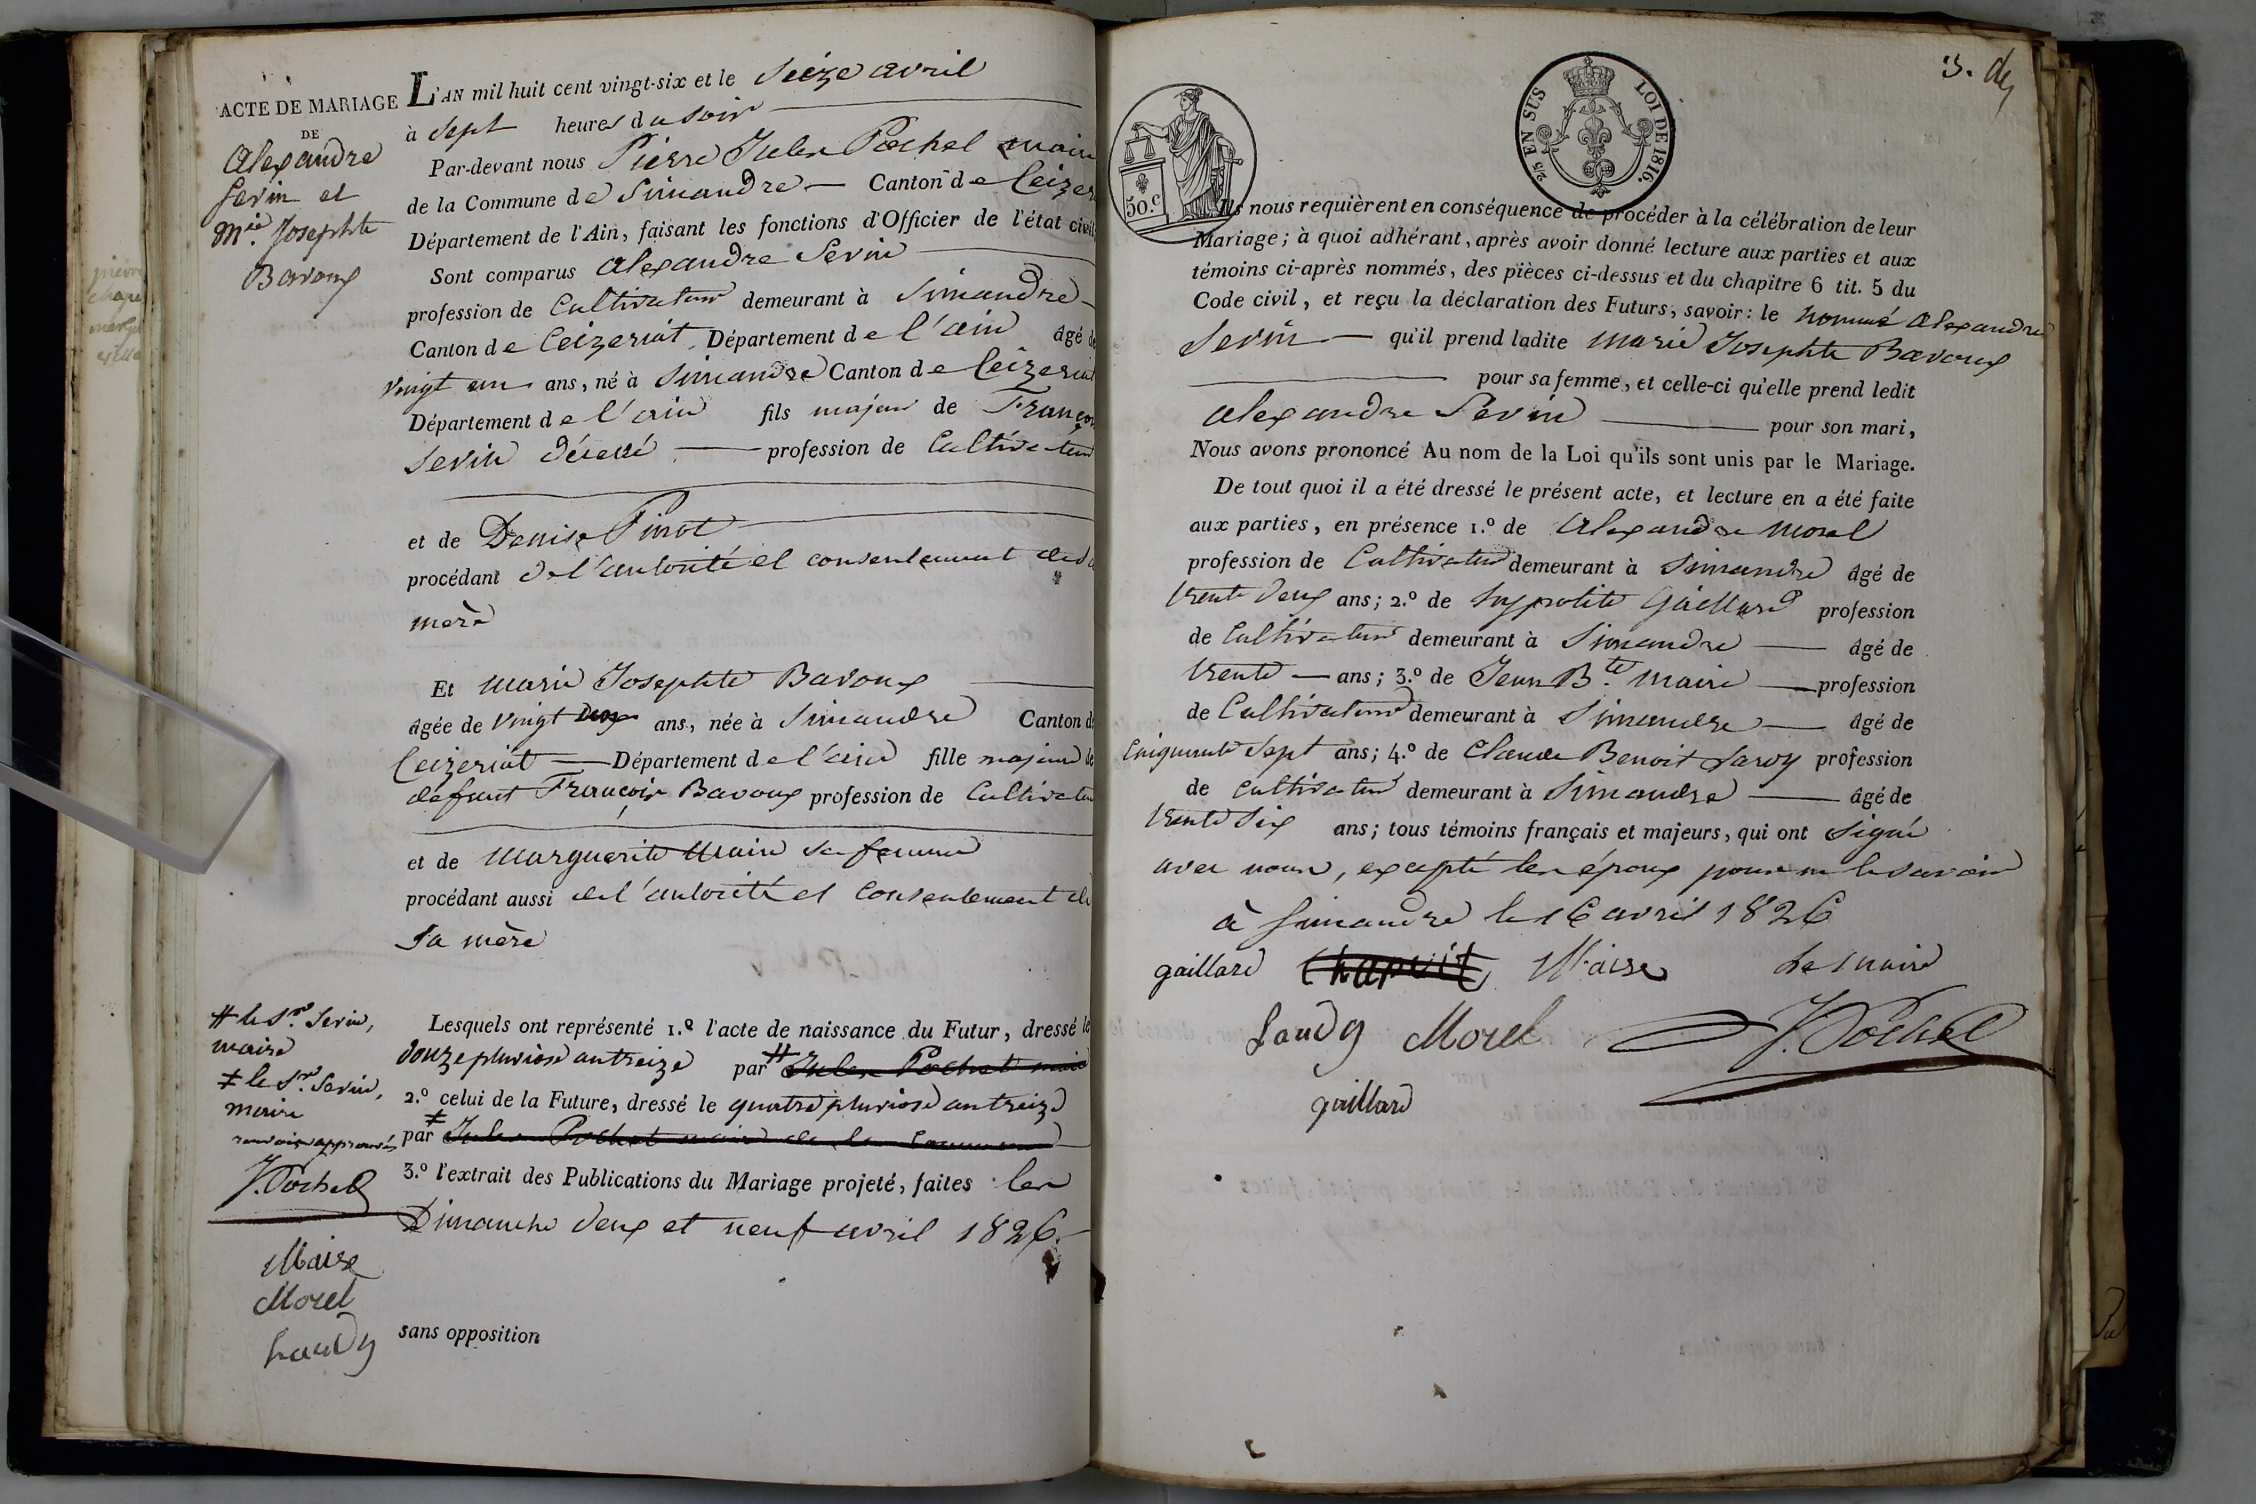 ACTE DE MARIAGE
DE
Alexandre
Servin et
M.ie Josephte
Bavoux
L'AN mil huit cent vingt-six et le Seize avril
à Sept heures du soir
Par-devant nous Pierre Jules Pochet maire
de la Commune de Simandre Canton de Ceizeriat
Département de l'Ain, faisant les fonctions d'Officier de l'état civil
Sont comparus Alexandre Servin
profession de Cultivateur demeurant à Simandre
Canton de Ceizeriat Département de l'ain âgé de
vingt un ans, né à Simandre Canton de Ceizeriat
Département de l'ain fils majeur de François
Servin décédé profession de Cultivateur
et de Denise Pinot
procédant de l'autorité et consentement de sa
mère
Et marie Josephte Bavoux
âgée de vingt deux ans, née à Simandre Canton de
Ceizeriat Département de l'ain fille majeure de
defunt François Bavoux profession de Cultivateur
et de Marguerite Maire sa femme
procédant aussi de l'autorité et consentement de
Sa mère
Lesquels ont représenté 1.º l'acte de naissance du Futur, dressé le
douze pluviose an treize par # Jules Pochet maire
2.º celui de la Future, dressé le quatre pluviose an treize
par ‡ Jules Pochet maire de la Commune
3.º l'extrait des Publications du Mariage projeté, faites les
Dimanche deux et neuf avril 1826.
sans opposition
# le S.r Servin,
maire
‡ le S.r Servin,
maire
renvois approuvés
J. Pochet
Maire
Morel
Landy
50.c
2/5 EN SUS LOI DE 1816.
Ils nous requièrent en conséquence de procéder à la célébration de leur
Mariage; à quoi adhérant, après avoir donné lecture aux parties et aux
témoins ci-après nommés, des pièces ci-dessus et du chapitre 6 tit. 5 du
Code civil, et reçu la déclaration des Futurs, savoir: le nommé Alexandre
Servin qu'il prend ladite marie Josephte Bavoux
pour sa femme, et celle-ci qu'elle prend ledit
Alexandre Servin pour son mari,
Nous avons prononcé Au nom de la Loi qu'ils sont unis par le Mariage.
De tout quoi il a été dressé le présent acte, et lecture en a été faite
aux parties, en présence 1.º de Alexandre Morel
profession de Cultivateur demeurant à Simandre âgé de
trente deux ans; 2.º de hyppolite Gaillard profession
de Cultivateur demeurant à Simandre âgé de
trente ans; 3.º de Jean B.te Maire profession
de Cultivateur demeurant à Simandre âgé de
Cinquante Sept ans; 4.º de Claude Benoit Landy profession
de Cultivateur demeurant à Simandre âgé de
trente Six ans; tous témoins français et majeurs, qui ont Signé
avec nous, excepté les époux pour ne le savoir
à Simandre le 16 avril 1826
gaillard Chapuit Maire Le maire
Landy Morel J. Pochet
gaillard